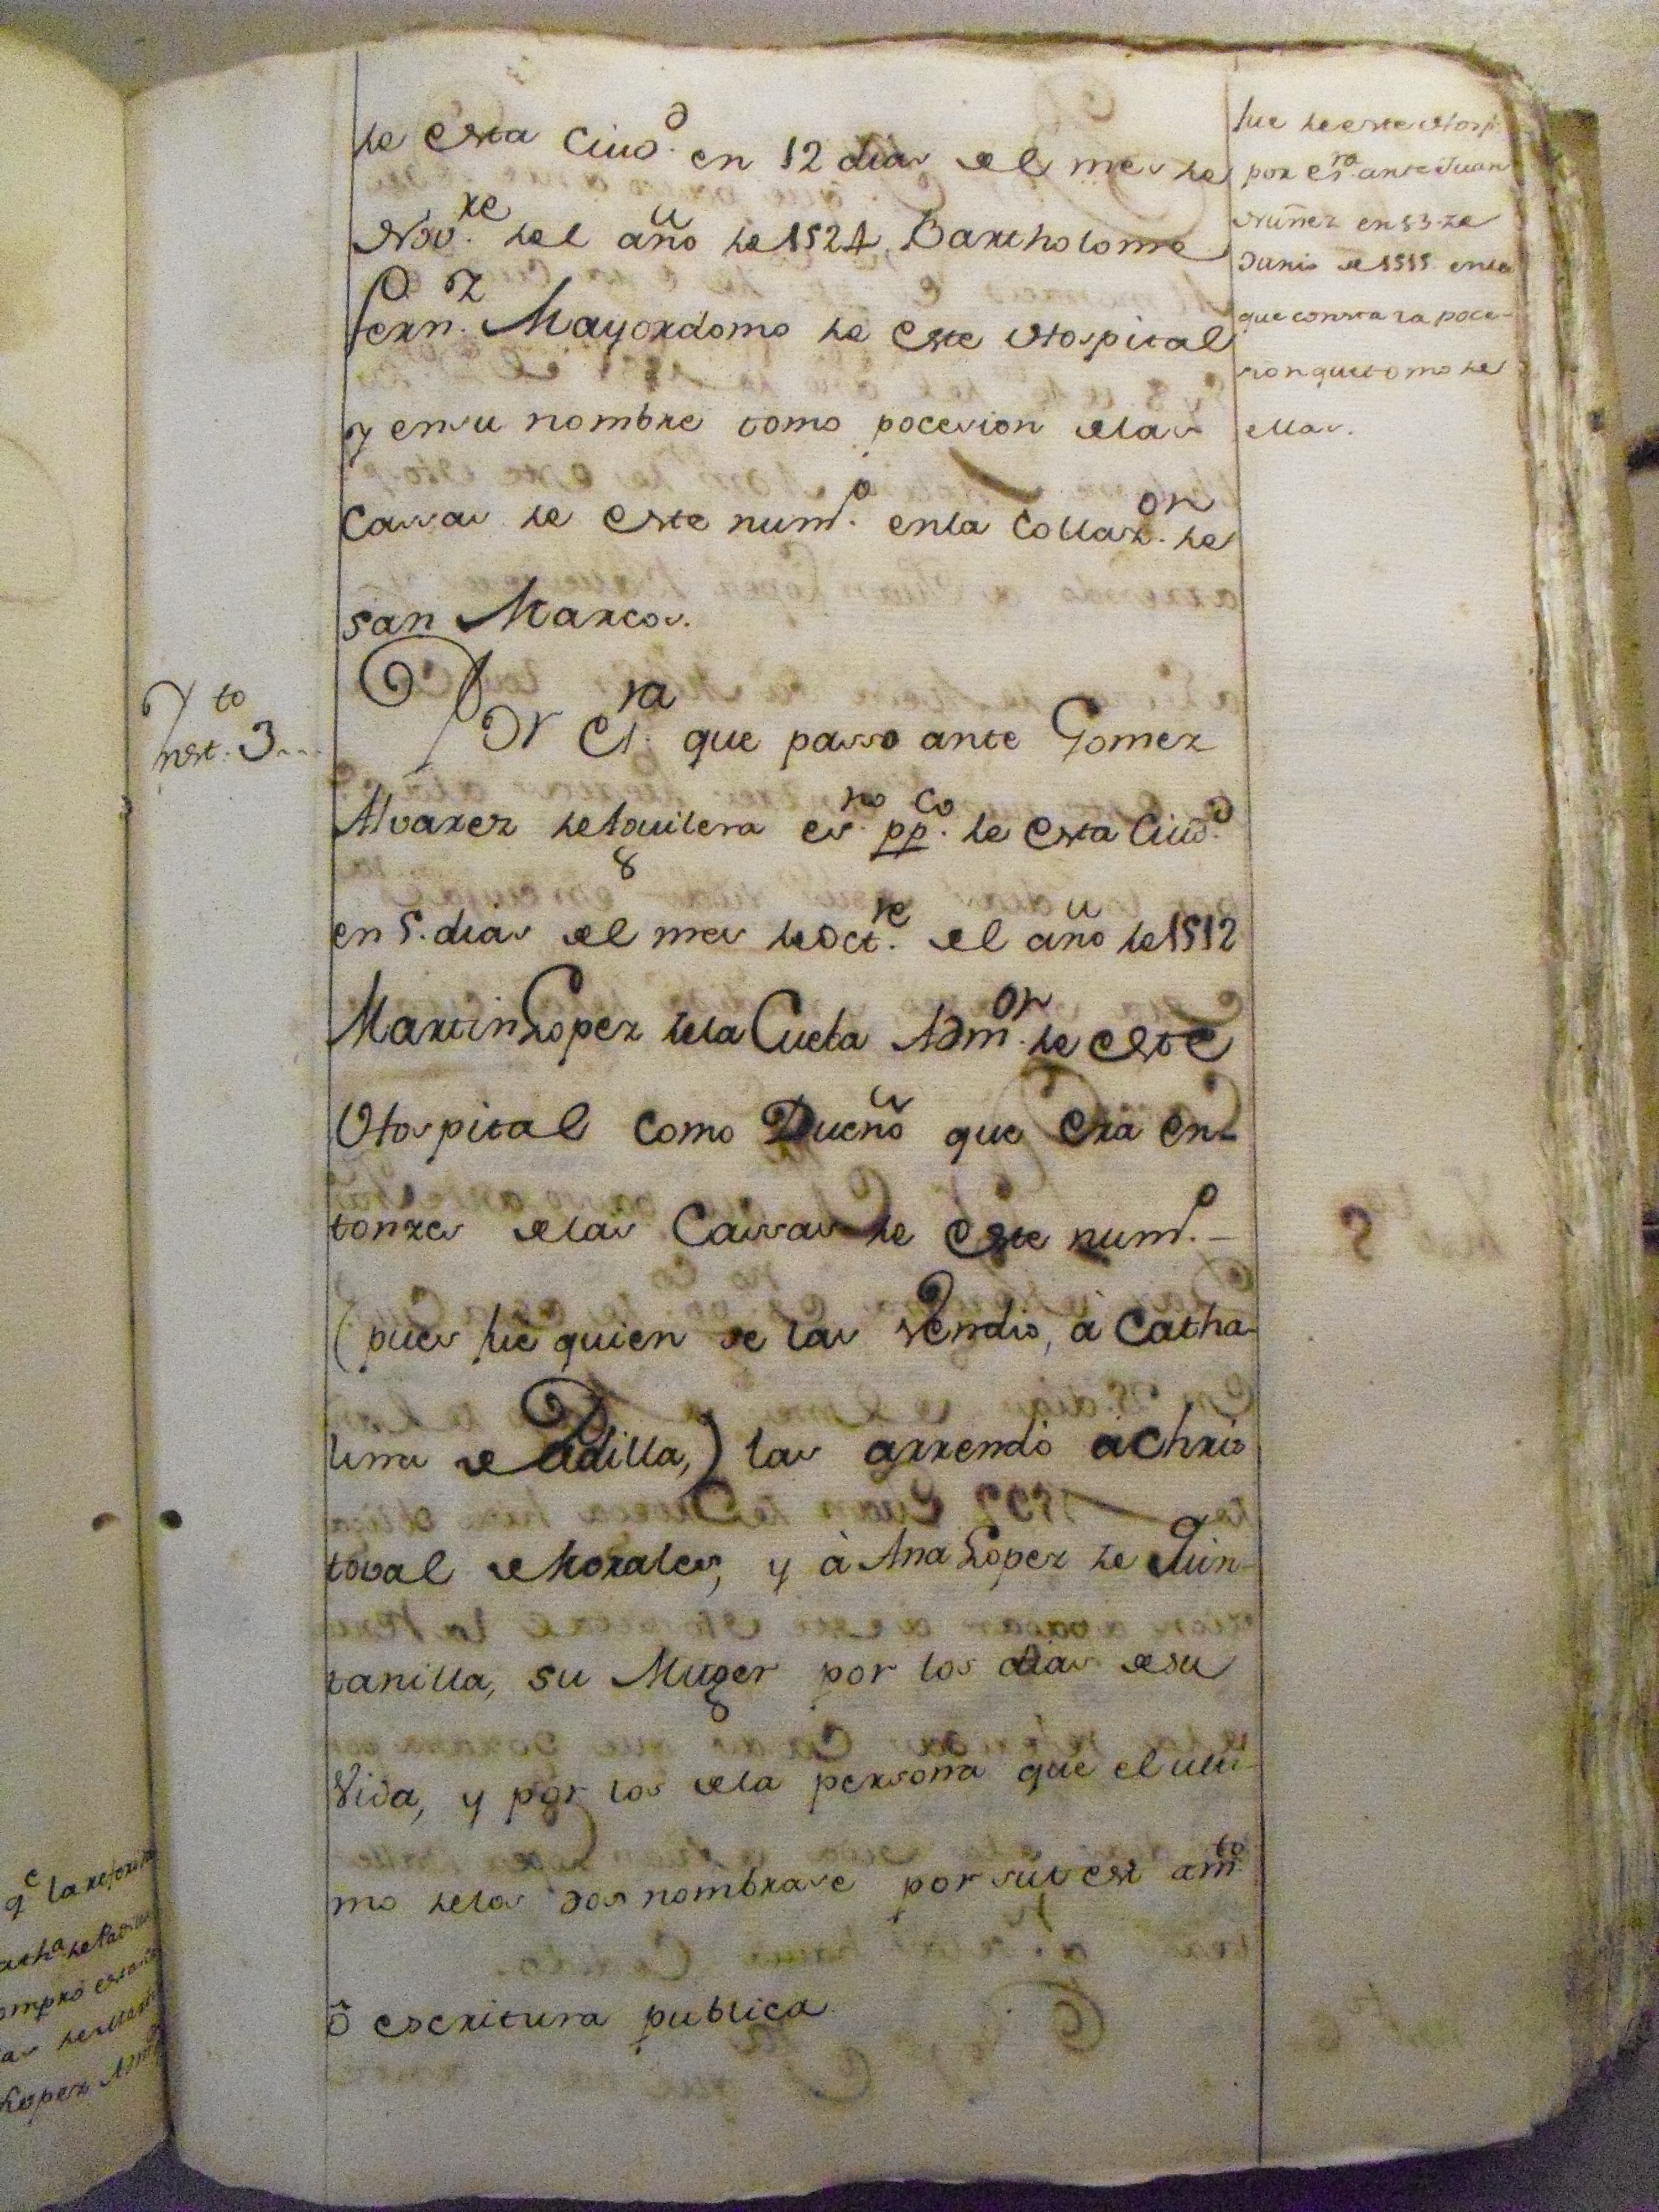 de esta Ciud.d en 12 dias del mes de
Nov.re del año de 1524 Bartholome
Fern.z Mayordomo de este Hospital
y en su nombre tomo pocesion delas
Cassas de este num.o enla Collaz.on de
san Marcos.
Ynst.to 3
Por es.ra que passo ante Gomez
Alvarez de Aguilera es.no pp.co de esta Ciud.d
en 5. dias del mes de Oct.re del año de 1512
Martin Lopez dela Cueba Adm.or de este
Hospital como Dueño que Era en-
tonzes delas Cassas de este num.o
(pues fue quien se las Vendio, à Catha-
lina de Padilla,) las arrendò à Chris
toval de Morales, y à Ana Lopez de Quin-
tanilla, su Muger por los dias de su
Vida, y por los dela persona que el ulti-
mo delos dos nombrase por su test am.to
ô escritura publica.
fue de este Hosp.
por es.ra ante Juan
Nuñez en 13 de
Junio de 1515 enla
que consta la poce-
sion que tomo de
ellas.
q.e la
Cath.a de Padilla
compro
Lopez Adm.or